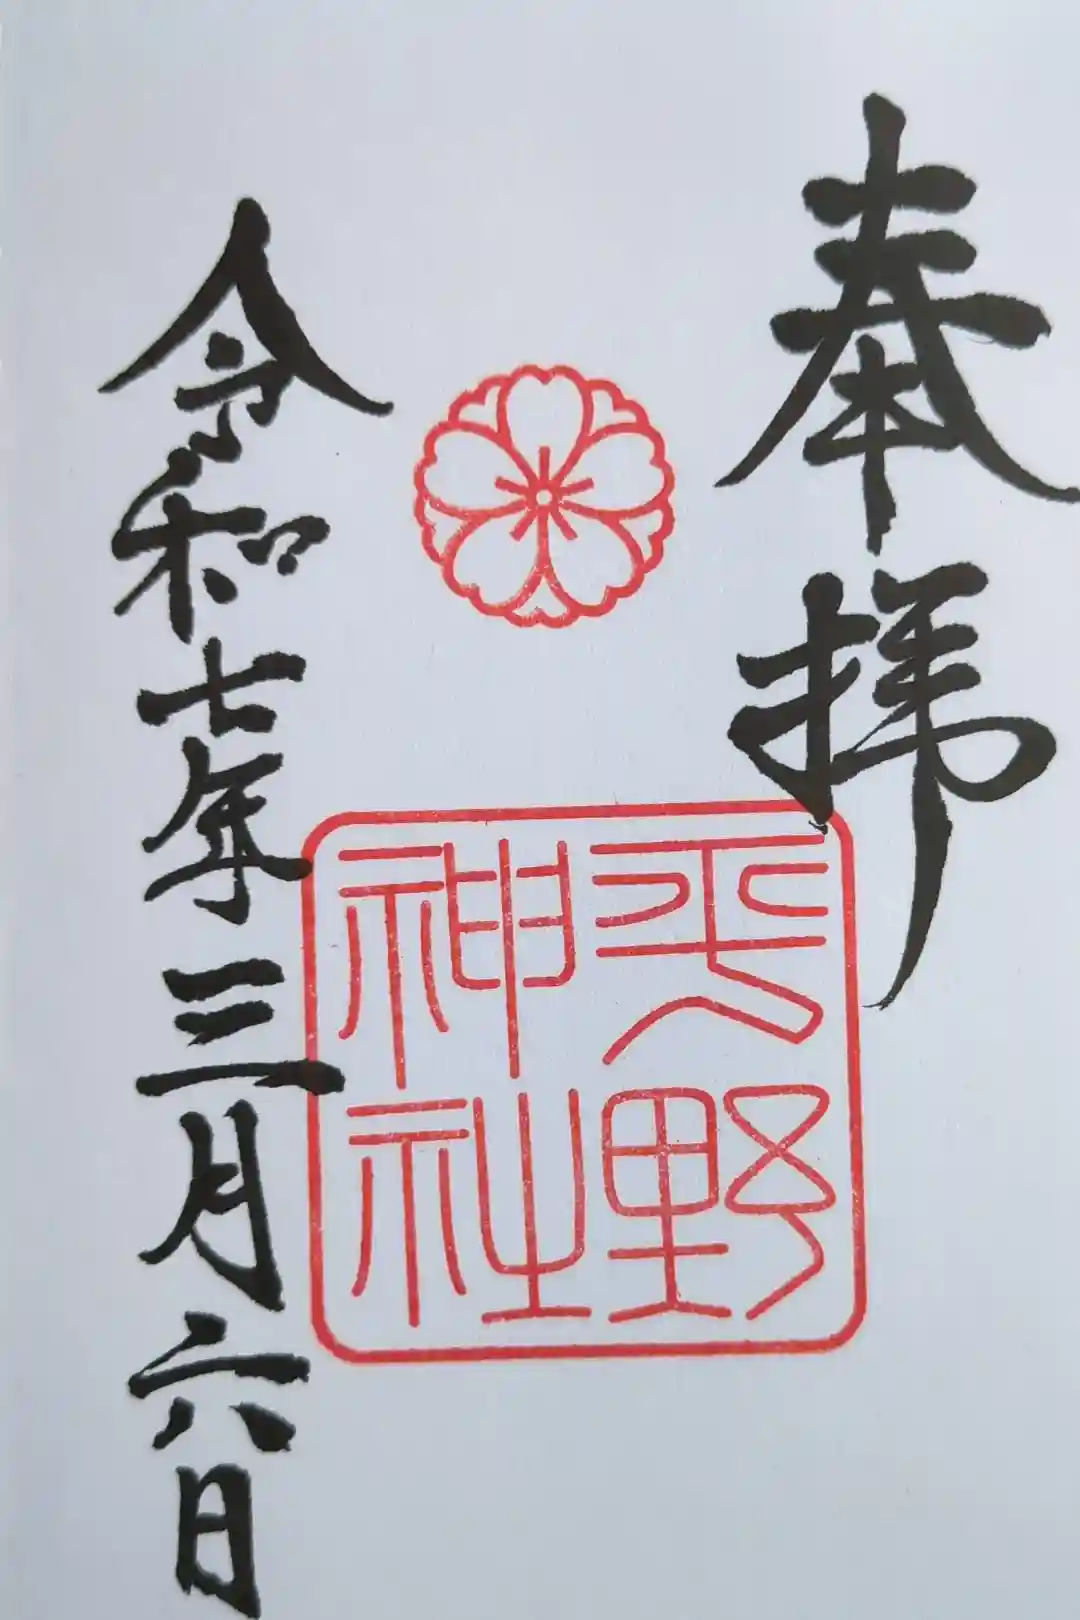 奉拝
平野
神社
令和七年三月六日